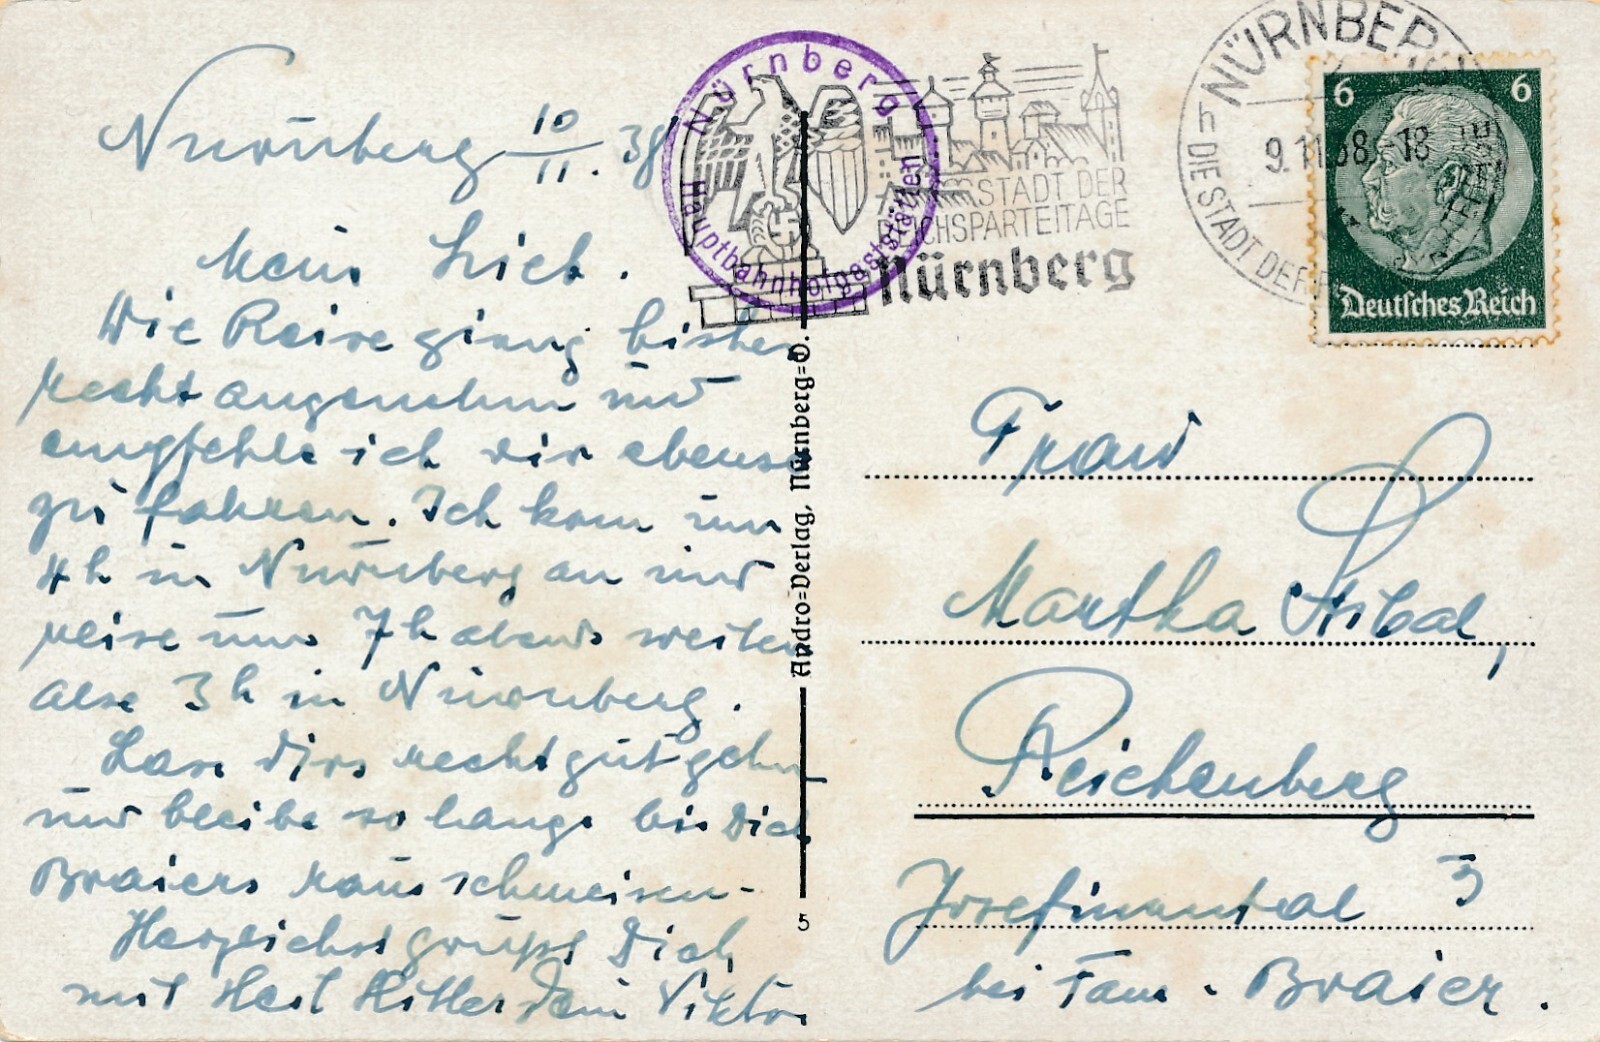 Nürnberg 10/11. 38
Mein Lieb.
Die Reise gieng bisher
recht angenehm und
empfehle ich dir ebenso
zu fahren. Ich kam um
4 h in Nürnberg an und
reise um 7 h abends weiter
also 3 h in Nürnberg.
Lass dirs recht gut gehn
und bleibe so lange bis Dich
Braiers raus schmeisen.
Herzlichst grüsst Dich
mit Heil Hitler Dein Viktor
Nürnberg
Hauptbahnhofgaststätten
STADT DER
REICHSPARTEITAGE
Nürnberg
NÜRNBERG
9.11.38-18
h
DIE STADT DER
6 6
Deutsches Reich
Andro=Verlag, Nürnberg=O.
5
Frau
Martha
Reichenberg
Josefinental 3
bei Fam. Braier.